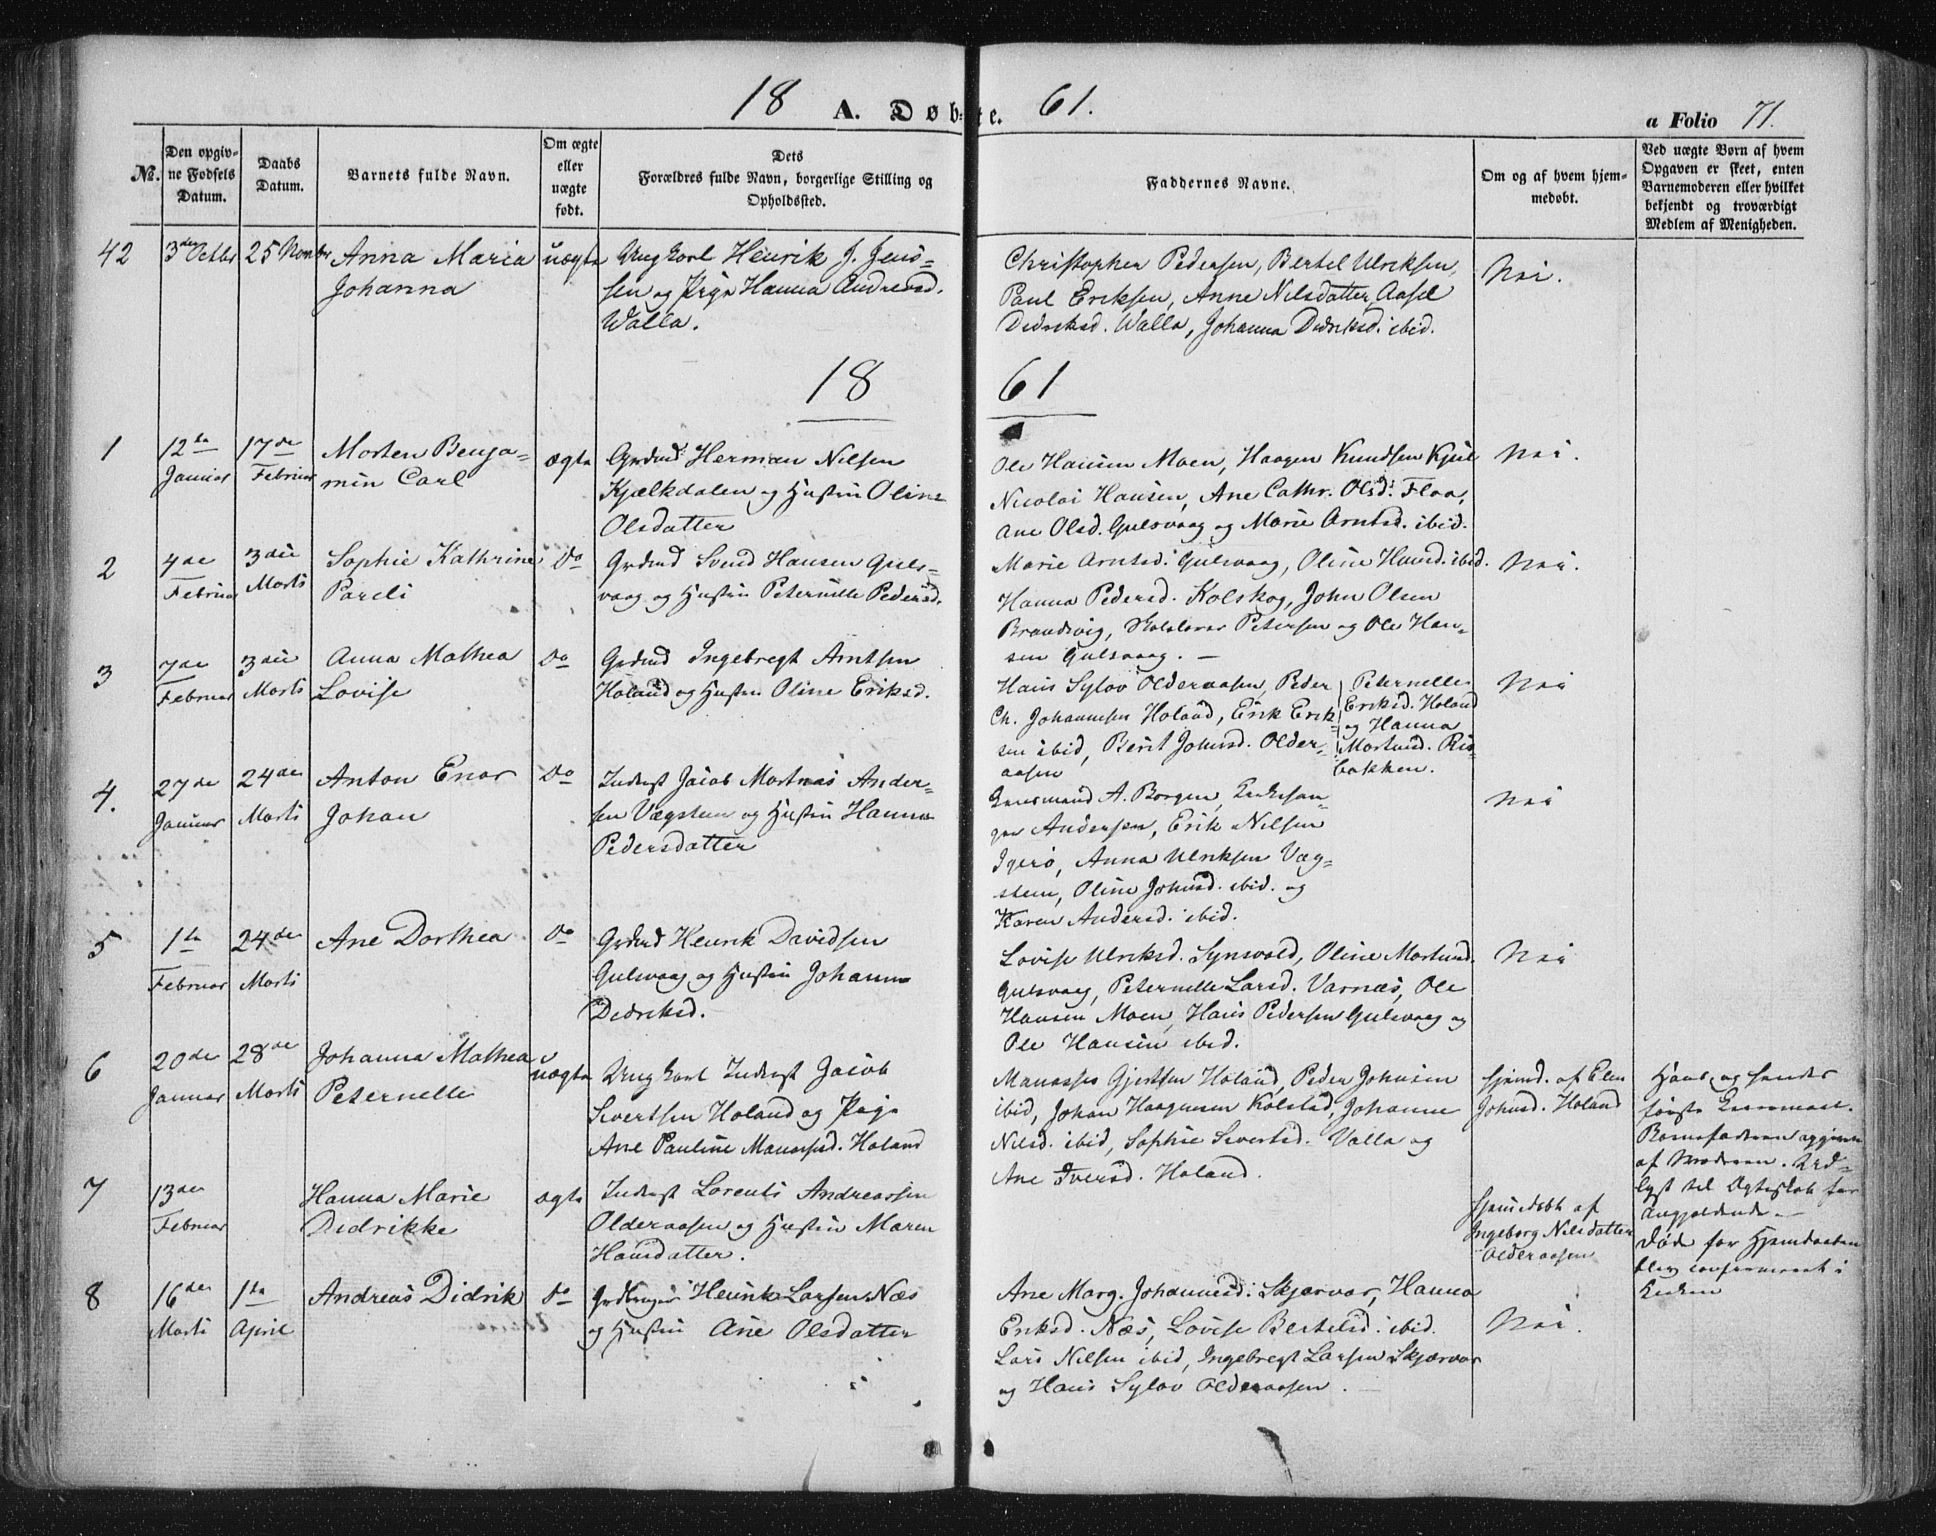 18 A. Døbte. 61.
a Folio 71.
No.
Den opgiv-
ne Fødsels
Datum.
Daabs
Datum.
Barnets fulde Navn.
Om ægte
eller
uægte
født.
Dets
Forældres fulde Navn, borgerlige Stilling og
Opholdssted.
Faddernes Navne.
Om og af hvem hjem-
medøbt.
Ved uægte Børn af hvem
Opgaven er skeet, enten
Barnemoderen eller hvilket
bekjendt og troværdigt
Medlem af Menigheden.
42 3die Octbr 25 Novbr Anna Maria
Johanna
uægte
Ungkarl Henrik J. Jens-
sen og Pige Hanna Andersd.
Walla.
Christopher Pedersen, Bertel Ulriksen,
Paul Eriksen, Anne Nilsdatter, Aasel
Didriksd. Walla, Johanna Didriksd. ibid.
Nei.
18 61
1 12te
Januar
17de
Februar
Morten Benja-
min Carl
ægte
Grdmd Herman Nilsen
Kjælkdalen og Hustru Oline
Olsdatter
Ole Hansen Moen, Haagen Knudsen Kjul
Nicolai Hansen, Ane Cathr. Olsd. Floa,
Ane Olsd. Gulsvaag og Marie Arntsd. ibid.
Nei.
2 4de
Februar
3die
Marts
Sophie Kathrine
Pareli
Do
Grdmd Svend Hansen Guls-
vaag og Hustru Peternille Pedersd.
Marie Arntsd. Gulsvaag, Oline Hansd. ibid.
Hanna Pedersd. Kolskog, John Olsen
Brandvig, Petersen og Ole Han-
sen Gulsvaag. —
Nei.
3 7de
Februar
3die
Marts
Anna Mathea
Lovise
Do
Grdmd Ingebregt Arntsen
Holand og Hustru Oline Eriksd.
Hans Sylov Olderaasen, Peder
Ch. Johannesen Holand, Erik Erik-
sen ibid, Berit Johnsd. Older-
aasen
Peternelle
Eriksd. Holand
og Hanna
Mortensd. Ris-
bakken.
Nei
4. 27de
Januar
24de
Marts
Anton Enor
Johan
Do
Inderst Jacob Mortnas Ander-
sen Vægstein og Hustru Hanna
Pedersdatter
Lensmand A. Borgen, Kirkesan-
ger Andersen, Erik Nilsen
Igerø, Anna Ulriksen Væg-
stein, Oline Johnsd. ibid. og
Karen Andersd. ibid.
Nei
5 1ste
Februar
24de
Marts
Ane Dorthea
Do
Grdmd Henrik Davidsen
Gulsvaag og Hustru Johanna
Didriksd.
Lovise Ulriksd. Synsvold, Oline Mortensd.
Gulsvaag, Peternelle Larsd. Varnæs, Ole
Hansen Moen, Hans Pedersen Gulsvaag og
Ole Hansen ibid.
Nei
6 20de
Januar
28de
Marts
Johanna Mathea
Peternelle
uægte
Ungkarl Inderst Jacob
Sivertsen Holand og Pige
Ane Pauline Manassesd. Holand
Manasses Gjertsen Holand, Peder Johnsen
ibid, Johan Haagensen Kolstad, Johanne
Nilsd. ibid, Sophie Sivertsd. Valla og
Ane Iversd. Holand.
Hjemd. af Elen
Johnsd. Holand
Hans og hendes
første Leiermaal.
Barnefaderen opgiven
af Moderen. Ud-
lyst til Ægteskab for
Angjældende. —
7 13de
Februar
Hanna Marie
Didrikke
ægte
Inderst Lorents Andreassen
Olderaasen og Hustru Maren
Hansdatter.
Hjemmedøbt af
Ingeborg Nilsdatter
Olderaasen
Døde før Hjemdaaben
blev confirmeret i
Kirken
8 16de
Marts
1ste
April
Andreas Didrik
Do
Grdbruger Henrik Larsen Næs
og Hustru Ane Olsdatter
Ane Marg. Johannesd. Skjærvær, Hanna
Eriksd. Næs, Lovise Bertelsd. ibid.
Lars Nilsen ibid, Ingebregt Larsen Skjærvær
og Hans Sylov Olderaasen.
Nei.